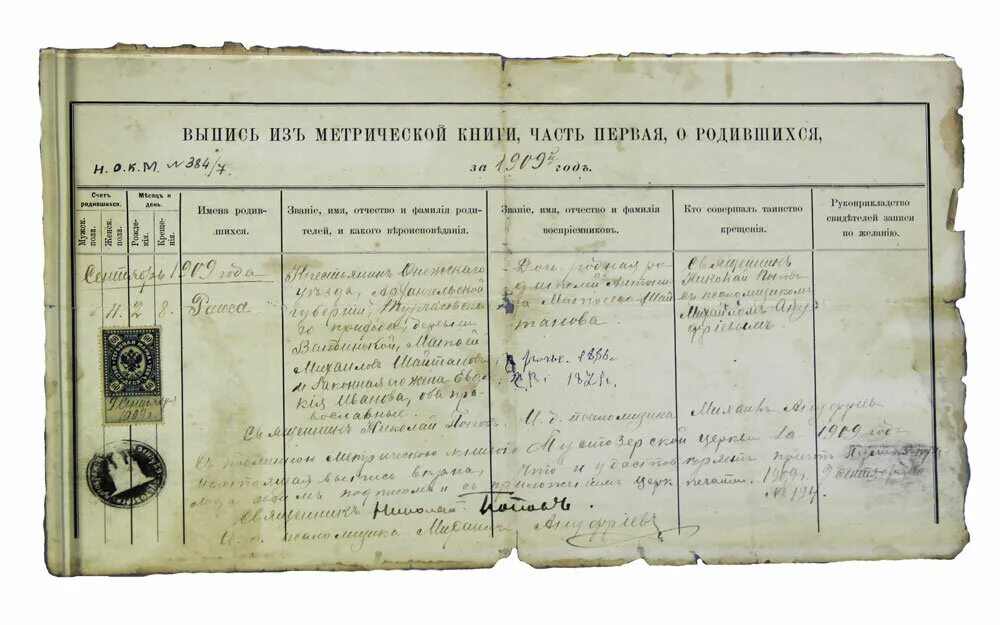 ВЫПИСЬ ИЗЪ МЕТРИЧЕСКОЙ КНИГИ, ЧАСТЬ ПЕРВАЯ, О РОДИВШИХСЯ,
Н.О.К.М. №384/7.
за 1909й годъ.
Счетъ родившихся.
Мѣсяцъ и день.
Мужск. пола.
Женск. пола.
Рожденія.
Крещенія.
Имена родившихся.
Званіе, имя, отчество и фамилія родителей, и какого вѣроисповѣданія.
Званіе, имя, отчество и фамилія воспріемниковъ.
Кто совершалъ таинство крещенія.
Рукоприкладство свидѣтелей записи по желанію.
Сентябрь 1909 года
" 11. 2 8. Раиса
Крестьянинъ Онежскаго
уѣзда, Архангельской
губерніи,
прихода, деревни
Матѳей
Михайловъ Шайтановъ
и законная его жена Евдо
кія Иванова, оба пра
вославные.
Дочь родная ро
дителей Антони
на Матѳеева Шай
танова.
1896.
Священникъ
Николай Поповъ
съ псаломщикомъ
Михаиломъ Ануфріевымъ.
9 Сентября
1909 г.
Священникъ Николай Поповъ. И. д. псаломщика Михаилъ Ануфріевъ
метрическою книгою церкви за 1909 годъ
настоящая выпись вѣрна, что и удостовѣряетъ причтъ
подписомъ и съ приложеніемъ церк. печати. 1909 г. 9 Сентября
№ 194.
Священникъ Николай Поповъ.
И. д. псаломщика Михаилъ Ануфріевъ